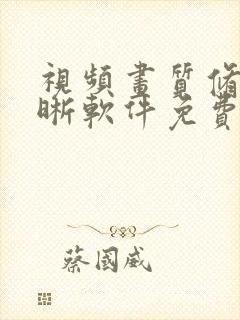 視頻畫質脩
晰軟件免費
蔡國威